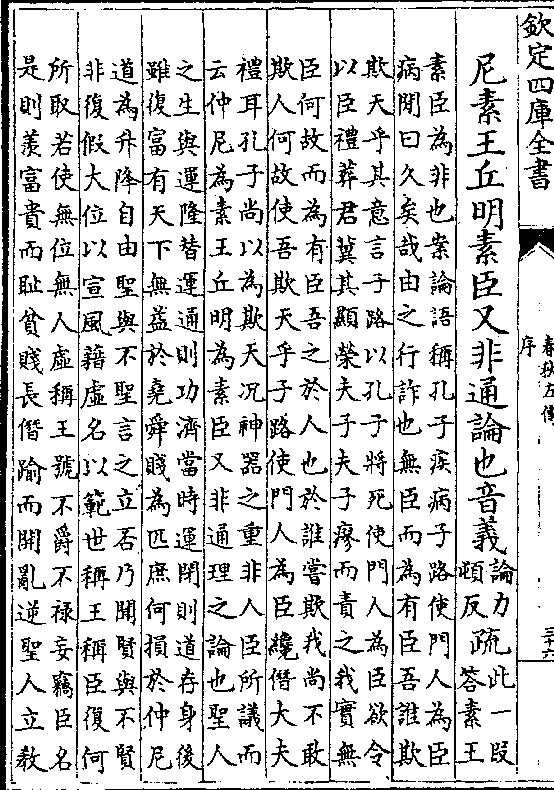 欽定四庫全書
春秋左傳
序
三十六
尼素王丘明素臣又非通論也音義論力頓反疏此一段答素王
素臣為非也案論語稱孔子疾病子路使門人為臣
病閒曰久矣哉由之行詐也無臣而為有臣吾誰欺
欺天乎其意言子路以孔子將死使門人為臣欲令
以臣禮葬君冀其顯榮夫子夫子瘳而責之我實無
臣何故而為有臣吾之於人也於誰嘗欺我尚不敢
欺人何故使吾欺天乎子路使門人為臣纔僭大夫
禮耳孔子尚以為欺天況神器之重非人臣所議而
云仲尼為素王丘明為素臣又非通理之論也聖人
之生與運隆替運通則功濟當時運閉則道存身後
雖復富有天下無益於堯舜賤為匹庶何損於仲尼
道為升降自由聖與不聖言之立否乃關賢與不賢
非復假大位以宣風藉虛名以範世稱王稱臣復何
所取若使無位無人虛稱王號不爵不祿妄竊臣名
是則羨富貴而耻貧賤長僭踰而開亂逆聖人立教